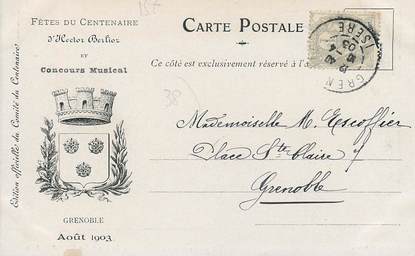 FÊTES DU CENTENAIRE
d'Hector Berlioz
ET
Concours Musical
Edition officielle du Comité du Centenaire
GRENOBLE
Août 1903
CARTE POSTALE
Ce côté est exclusivement réservé à l'a
38
GREN
ISÈRE
03
Mademoiselle M. Escoffier
Place Ste Claire 7
Grenoble